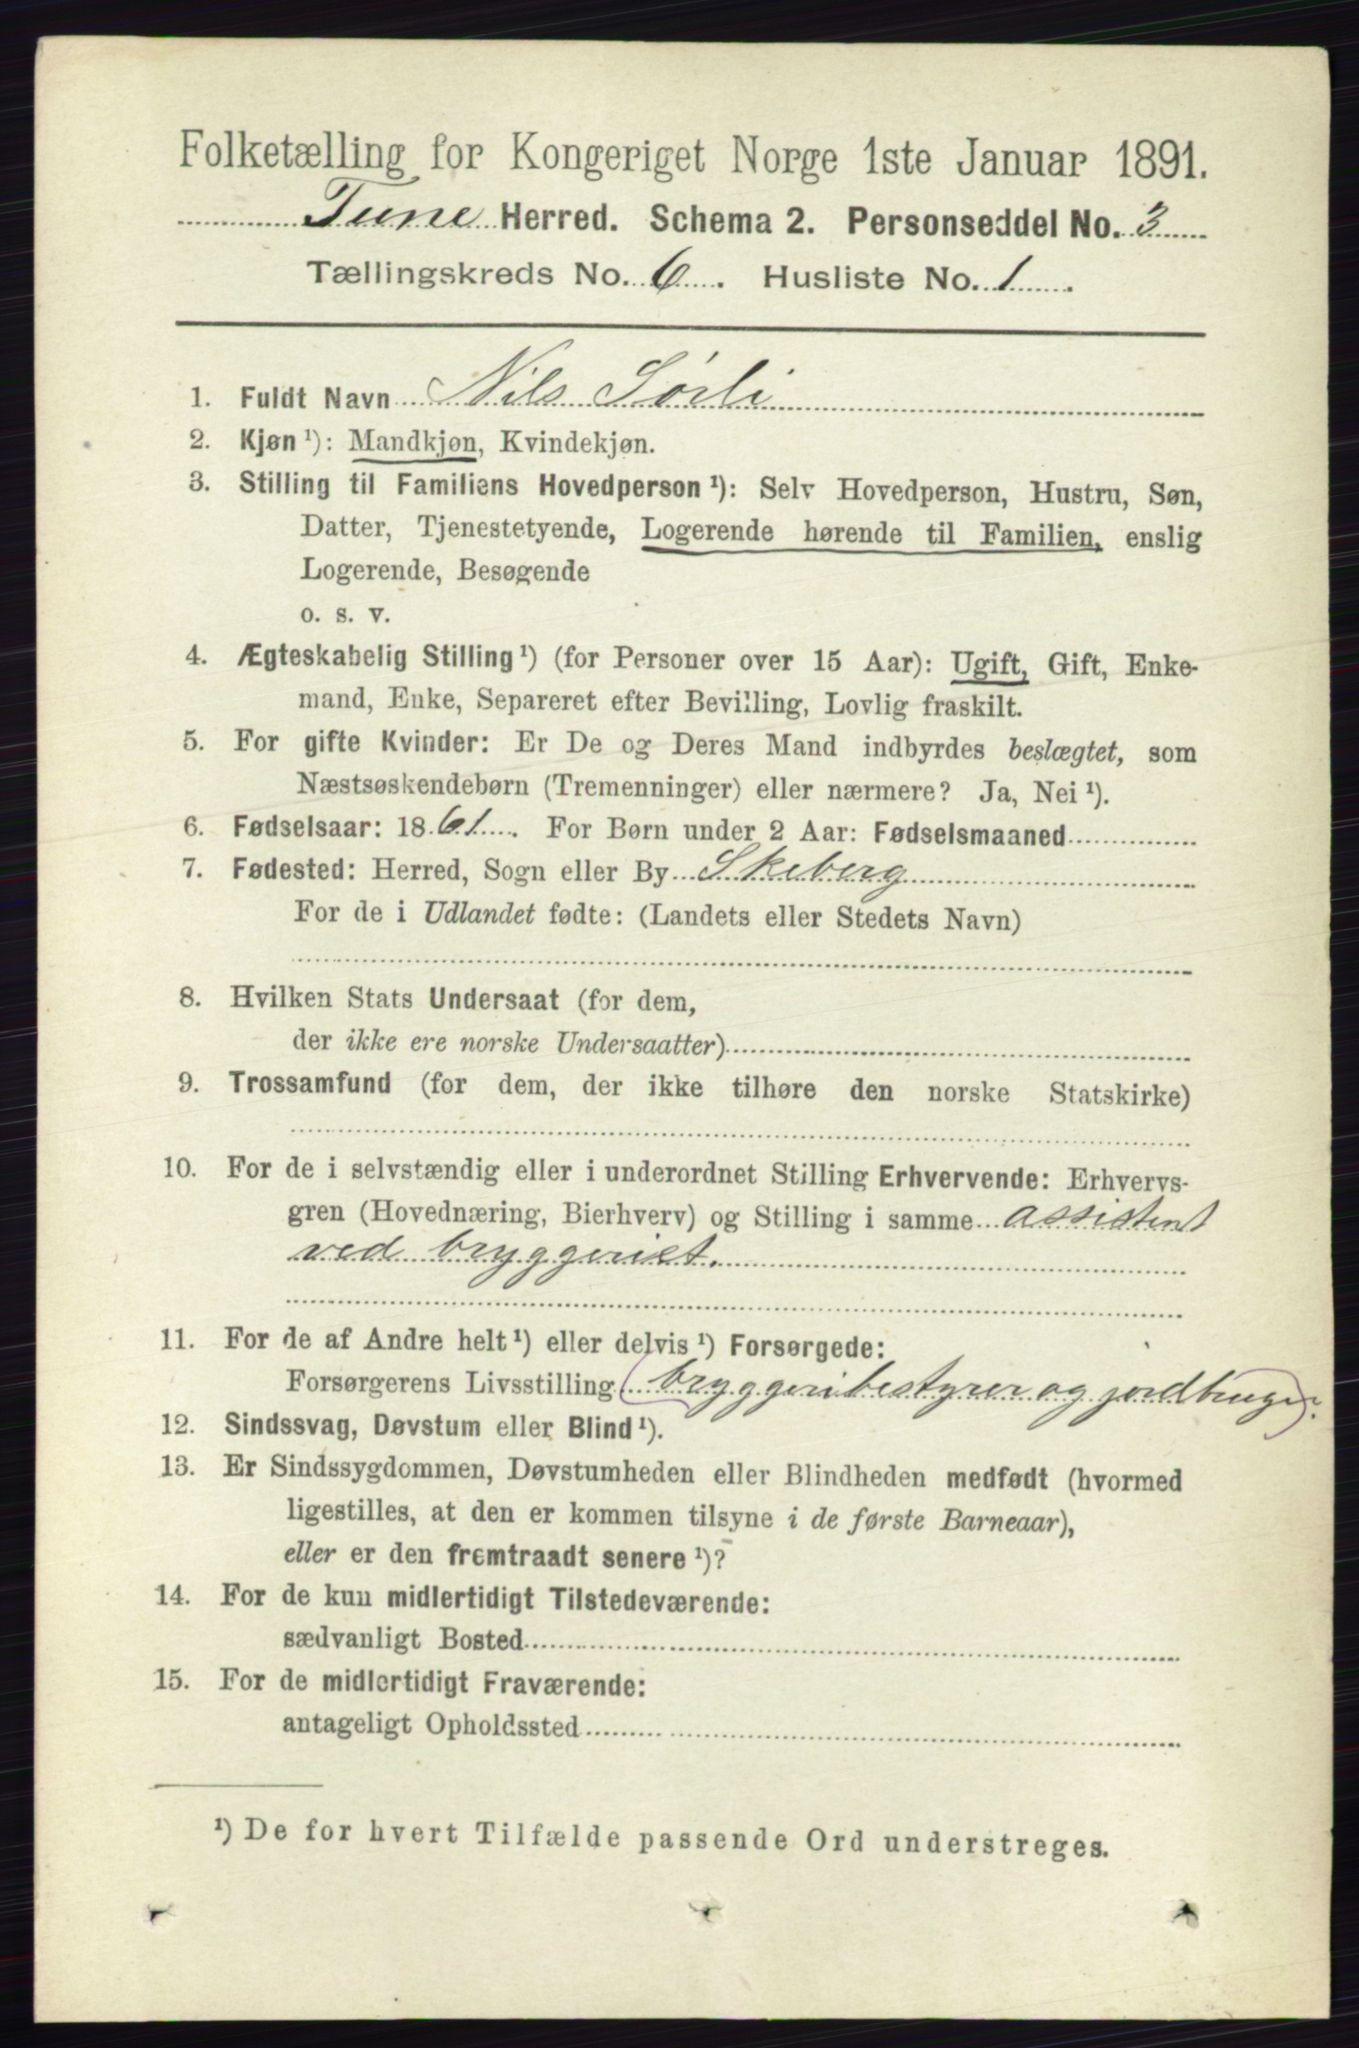 Folketælling for Kongeriget Norge 1ste Januar 1891.
Tune Herred. Schema 2. Personseddel No. 3
Tællingskreds No. 6. Husliste No. 1.
1. Fuldt Navn Nils Sørli
2. Kjøn ¹): Mandkjøn, Kvindekjøn.
3. Stilling til Familiens Hovedperson ¹): Selv Hovedperson, Hustru, Søn,
Datter, Tjenestetyende, Logerende hørende til Familien, enslig
Logerende, Besøgende
o. s. v.
4. Ægteskabelig Stilling ¹) (for Personer over 15 Aar): Ugift, Gift, Enke-
mand, Enke, Separeret efter Bevilling, Lovlig fraskilt.
5. For gifte Kvinder: Er De og Deres Mand indbyrdes beslægtet, som
Næstsøskendebørn (Tremenninger) eller nærmere? Ja, Nei ¹).
6. Fødselsaar: 1861. For Børn under 2 Aar: Fødselsmaaned
7. Fødested: Herred, Sogn eller By Skeberg
For de i Udlandet fødte: (Landets eller Stedets Navn)
8. Hvilken Stats Undersaat (for dem,
der ikke ere norske Undersaatter)
9. Trossamfund (for dem, der ikke tilhøre den norske Statskirke)
10. For de i selvstændig eller i underordnet Stilling Erhvervende: Erhvervs-
gren (Hovednæring, Bierhverv) og Stilling i samme assistent
ved bryggeriet.
11. For de af Andre helt ¹) eller delvis ¹) Forsørgede:
Forsørgerens Livsstilling (bryggeribestyrer og jordbruger).
12. Sindssvag, Døvstum eller Blind ¹).
13. Er Sindssygdommen, Døvstumheden eller Blindheden medfødt (hvormed
ligestilles, at den er kommen tilsyne i de første Barneaar),
eller er den fremtraadt senere ¹)?
14. For de kun midlertidigt Tilstedeværende:
sædvanligt Bosted
15. For de midlertidigt Fraværende:
antageligt Opholdssted
¹) De for hvert Tilfælde passende Ord understreges.